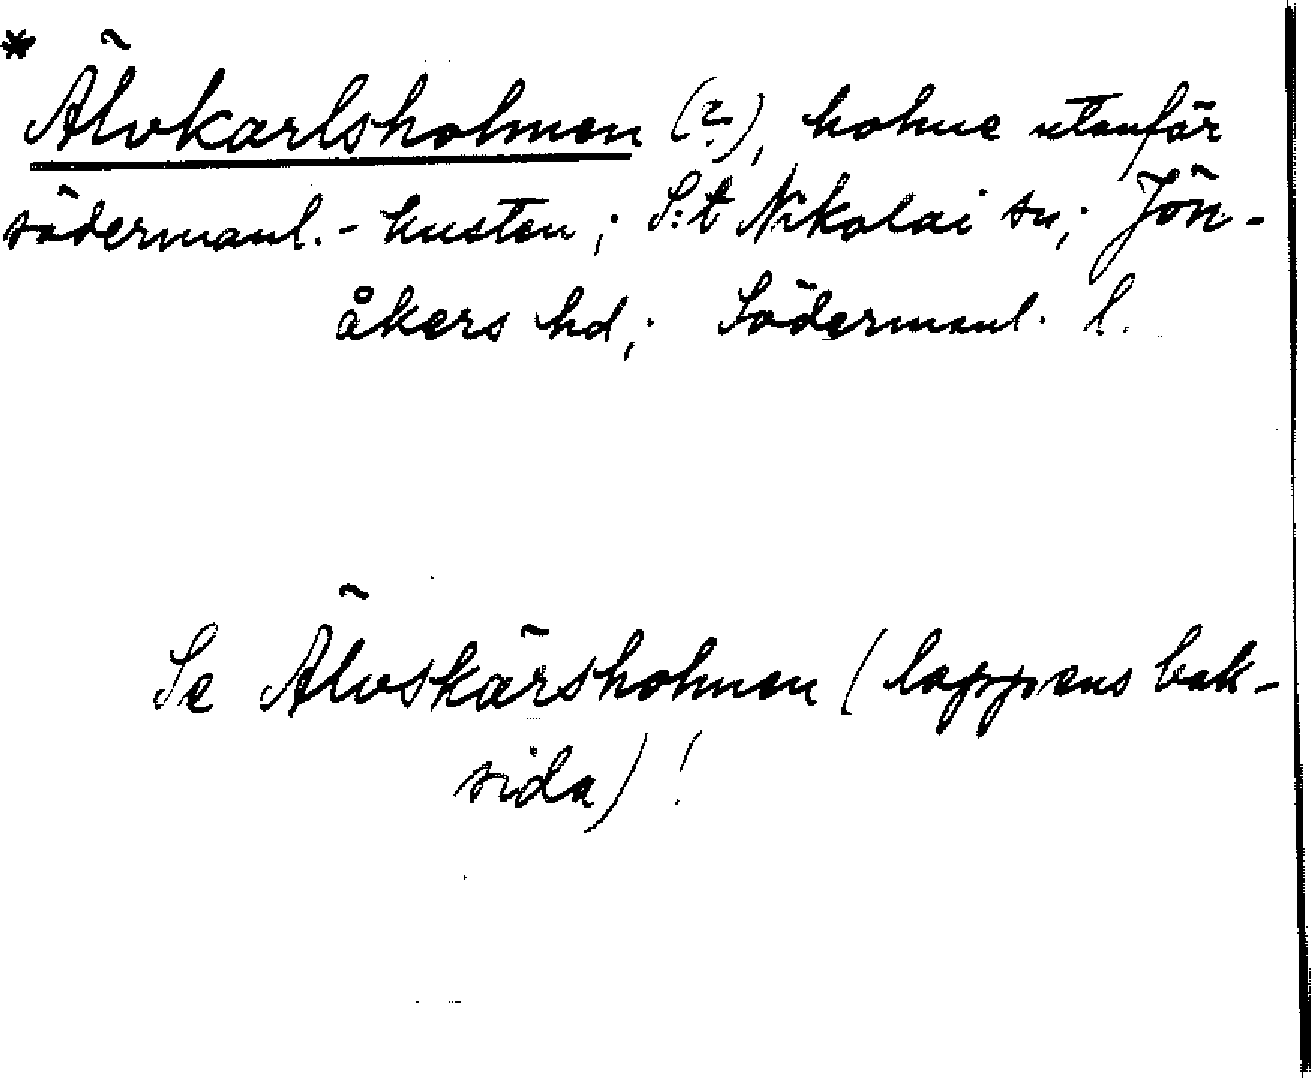 *
Älvkarlsholmen (?), holme utanför
södermanl.-kusten; S:t Nikolai sn; Jön-
åkers hd; Södermanl. l.
Se Älvskärsholmen (lappens bak-
sida)!